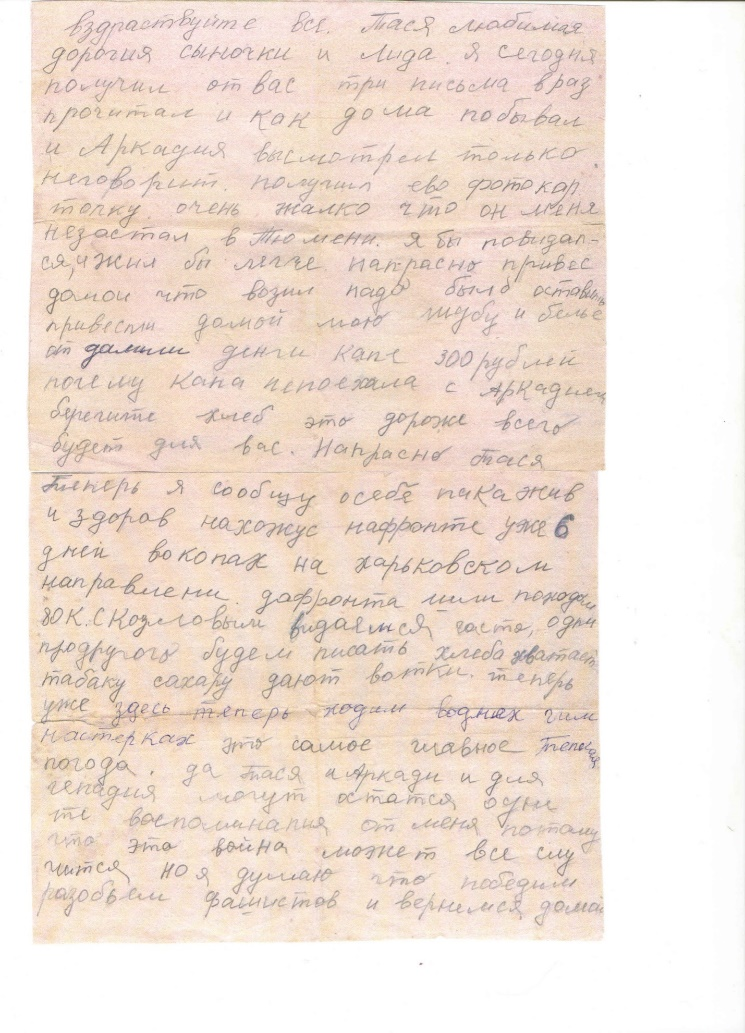 вздраствуйте все. Тася любимая
дорогия сыночки и Лида. я сегодня
получил от вас три письма враз
прочитал и как дома побывал
и Аркадия высмотрел только
неговорит. получил ево фотокар
точку. очень жалко что он меня
незастал в Тюмени. я бы повидал-
ся, и жил бы легче напрасно привес
домои что возил надо было оставить
привести домой мою шубу и белье
от далили денги Капе 300 рублей
почему Капа непоехала с Аркадием
берегите хлеб это дороже всего
будет для вас. Напрасно Тася
Теперь я сообщу осебе пака жив
и здоров нахожус нафронте уже 6
дней вокопах на харьковском
направлени. дафронта шли походом
80 К. С Козловым видаемся часто, одни
продругого будем писать хлеба хватает
табаку сахару дают вотки. теперь
уже здесь теперь ходимводних гим
настерках это самое главное Теплая
погода. да Тася и Аркади и для
генадия могут остатся одни
те воспоминания от меня потому
что это война может все слу
чится, но я думаю что победим
разобьем фашистов и вернемся домой